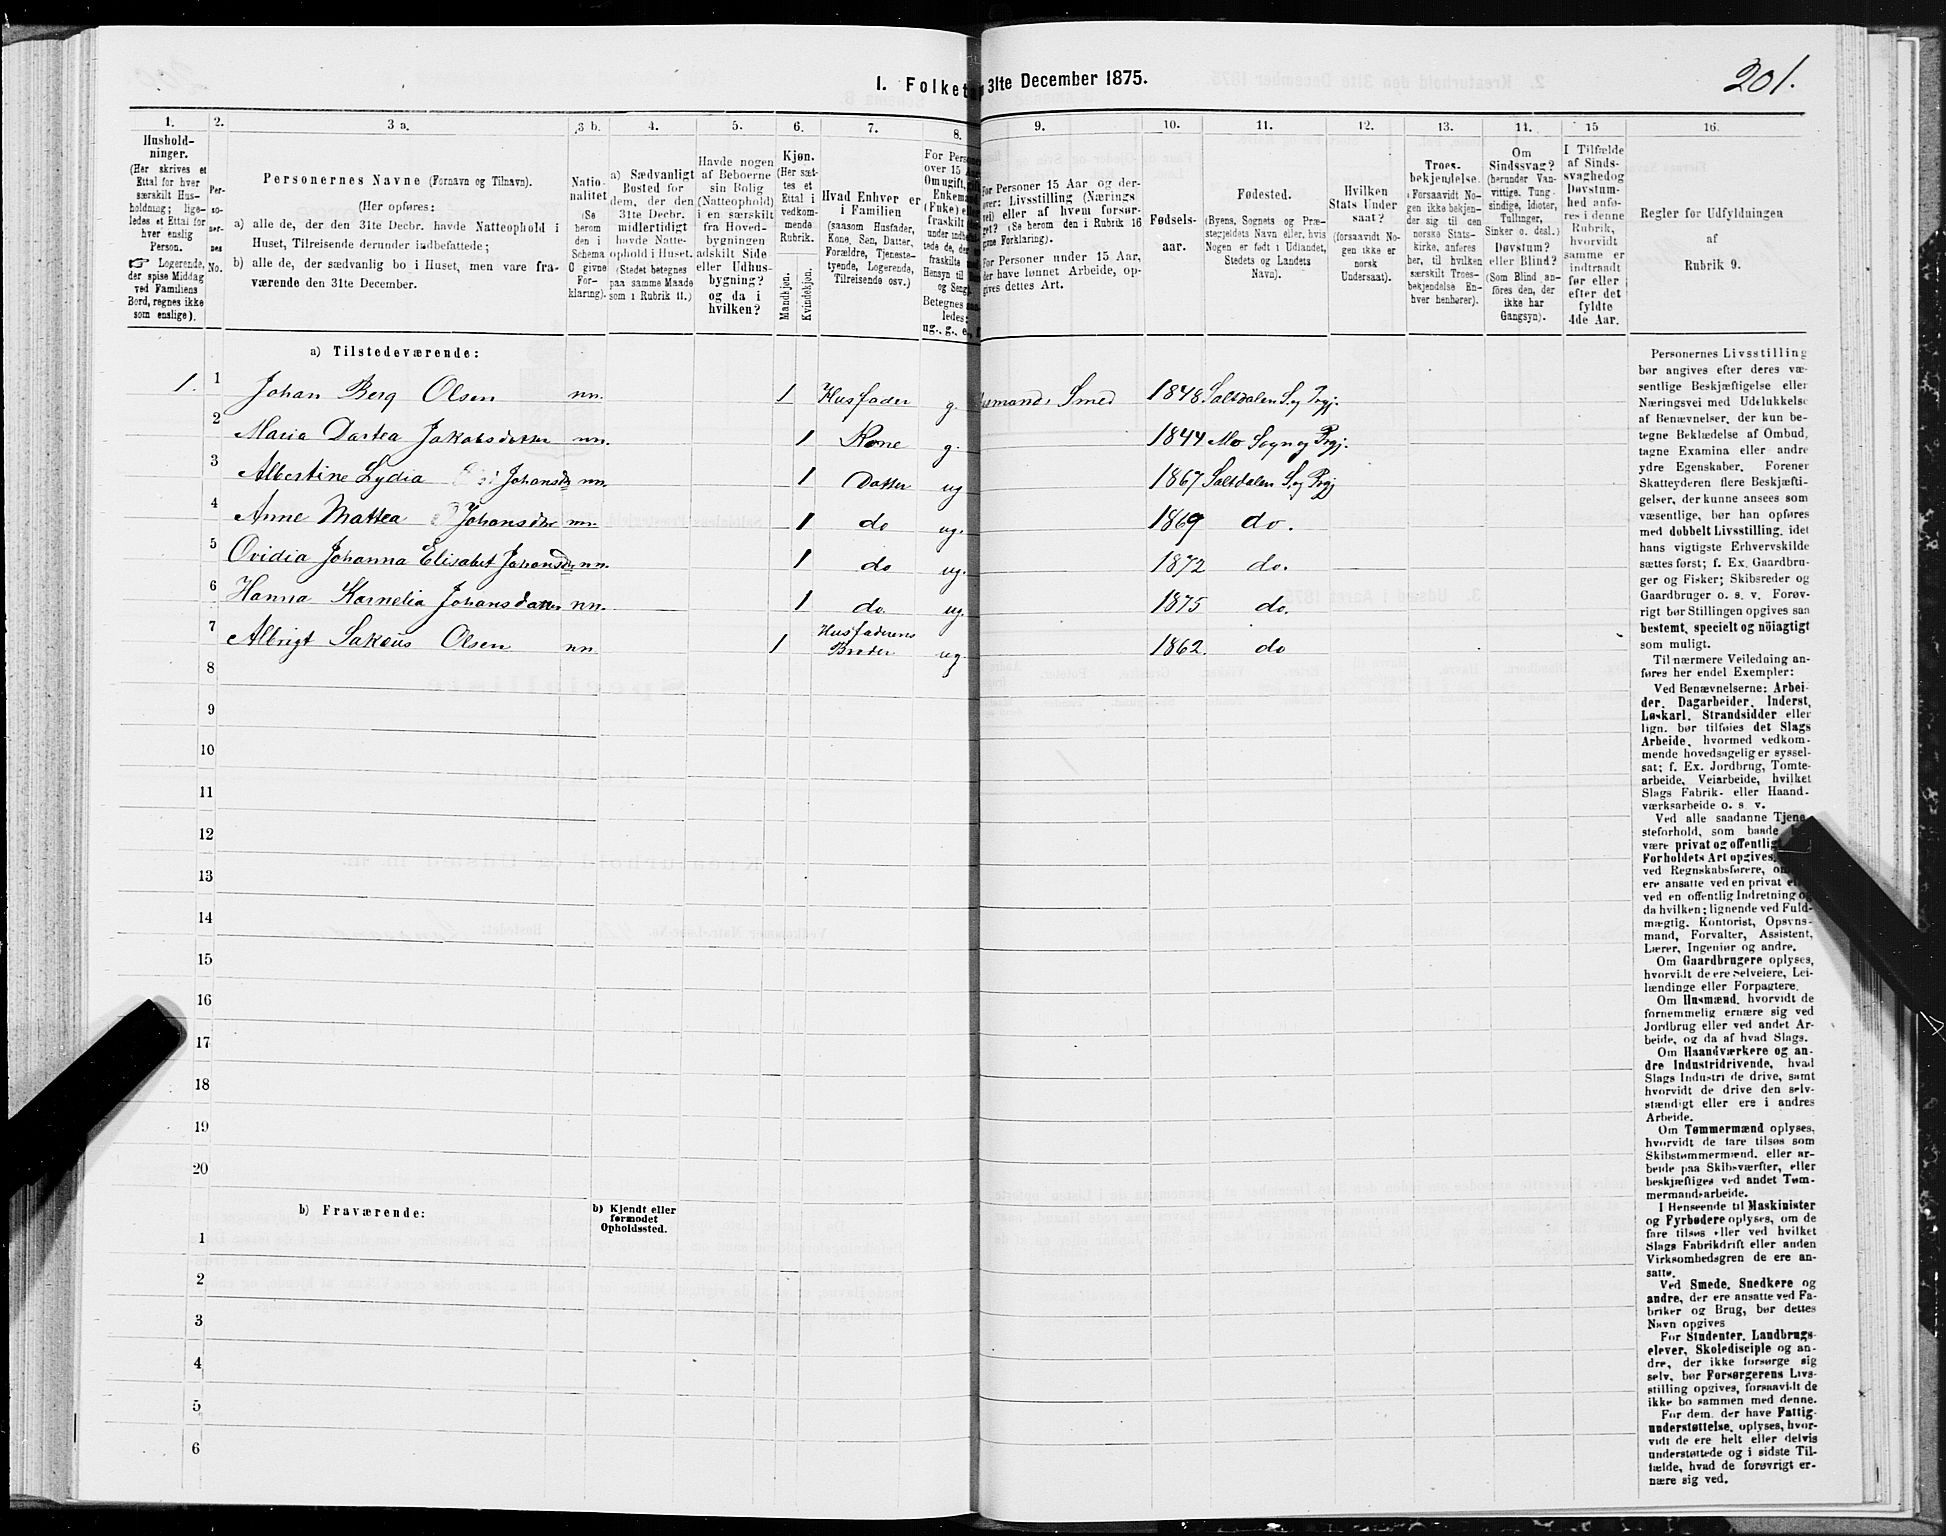 201.
1. Folketæ 31te December 1875.
1. 2. 3 a. 3 b. 4. 5. 6. 7. 8. 9. 10. 11. 12. 13. 14. 15 16.
Hushold-
ninger.
(Her skrives et
Ettal for hver
særskilt Hus-
holdning; lige-
ledes et Ettal for
hver enslig
Person.
☞ Logerende,
der spise Middag
ved Familiens
Bord, regnes ikke
som enslige).
Per-
so-
ner-
nes
No.
Personernes Navne (Fornavn og Tilnavn).
(Her opføres:
a) alle de, der den 31te Decbr. havde Natteophold i
Huset, Tilreisende derunder indbefattede;
b) alle de, der sædvanlig bo i Huset, men vare fra-
værende den 31te December.
Natio-
nalitet
(Se
herom
den i
Schema
C givne
For-
klaring).
a) Sædvanligt
Bosted for
dem, der den
31te Decbr.
midlertidigt
havde Natte-
ophold i Huset.
(Stedet betegnes
paa samme Maade
som i Rubrik 11.)
Havde nogen
af Beboerne
sin Bolig
(Natteophold)
i en særskilt
fra Hoved-
bygningen
adskilt Side-
eller Udhus-
bygning?
og da i
hvilken?
Kjøn.
(Her sæt-
tes et
Ettal i
vedkom-
mende
Rubrik.
Mandkjøn.
Kvindekjøn.
Hvad Enhver er
i Familien
(saasom Husfader,
Kone, Søn, Datter,
Forældre, Tjeneste-
tyende, Logerende,
Tilreisende osv.)
For Perso
over 15 Aa
Om ugift,
Enkemand
(Enke) eller
fraskilt
under indbe
tede de, der
fraskilte
Hensyn til
og Seng).
Betegnes
ledes:
ug., g., e., f
For Personer 15 Aar og der-
over: Livsstilling (Nærings-
vei) eller af hvem forsør-
get? (Se herom den i Rubrik 16
givne Forklaring).
For Personer under 15 Aar,
der have lønnet Arbeide, op-
gives dettes Art.
Fødsels-
aar.
Fødested.
(Byens, Sognets og Præ-
stegjeldets Navn eller, hvis
Nogen er født i Udlandet,
Stedets og Landets
Navn).
Hvilken
Stats Under-
saat?
(forsaavidt No-
gen ikke er
norsk
Undersaat).
Troes-
bekjendelse.
(Forsaavidt No-
gen ikke bekjen-
der sig til den
norske Stats-
kirke, anføres
her, til hvilken
særskilt Troes-
bekjendelse En-
hver henhører).
Om
Sindssvag?
(herunder Van-
vittige, Tung-
sindige, Idioter,
Tullinger,
Sinker o. desl.)
Døvstum?
eller Blind?
(Som Blind an-
føres den, der
ikke har
Gangsyn).
I Tilfælde
af Sinds-
svaghed og
Døvstum-
hed anfø-
res i denne
Rubrik,
hvorvidt
samme er
indtraadt
før eller
efter det
fyldte
4de Aar.
Regler for Udfyldningen
af
Rubrik 9.
a) Tilstedeværende:
1. 1 Johan Berg Olsen nn. 1 Husfader g. Husmand, Smed 1848 Saltdalen S. og Prgj.
2 Maria Dortea Jakobsdatter nn. 1 Kone g. 1844 Mo Sogn og Prgj.
3 Albertine Lydia Johansdr nn. 1 Datter ug 1867 Saltdalen S. og Prgj
4 Anne Mattea Johansdtr nn. 1 do ug. 1869 do.
5 Ovidia Johanna Elisabet Johansdr nn. 1 do ug. 1872 do.
6 Hanna Kornelia Johansdatter nn. 1 do. ug. 1875 do.
7 Albrigt Sakæus Olsen nn. 1 Husfaderens Broder ug. 1862. do
8
9
10
11
12
13
14
15
16
17
18
19
20
b) Fraværende:
b) Kjendt eller
formodet
Opholdssted.
1
2
3
4
5
6
Personernes Livsstilling
bør angives efter deres væ-
sentlige Beskjæftigelse eller
Næringsvei med Udelukkelse
af Benævnelser, der kun be-
tegne Beklædelse af Ombud,
tagne Examina eller andre
ydre Egenskaber. Forener
Skatteyderen flere Beskjæfti-
gelser, der kunne ansees som
væsentlige, bør han opføres
med dobbelt Livsstilling, idet
hans vigtigste Erhvervskilde
sættes først; f. Ex. Gaardbru-
ger og Fisker; Skibsreder og
Gaardbruger o. s. v. Forøv-
rigt bør Stillingen opgives saa
bestemt, specielt og nöiagtigt
som muligt.
Til nærmere Veiledning an-
føres her endel Exempler:
Ved Benævnelserne: Arbei-
der, Dagarbeider, Inderst,
Løskarl, Strandsidder eller
lign. bør tilføies det Slags
Arbeide, hvormed vedkom-
mende hovedsagelig er syssel-
sat; f. Ex. Jordbrug, Tomte-
arbeide, Veiarbeide, hvilket
Slags Fabrik- eller Haand-
værksarbeide o. s. v.
Ved alle saadanne Tjene-
steforhold, som baade
være privat og offentlig
Forholdets Art opgives,
ved Regnskabsførere, om
ere ansatte ved en privat el
ved en offentlig Indretning og
da hvilken; lignende ved Fuld-
mægtig, Kontorist, Opsyns-
mand, Forvalter, Assistent,
Lærer, Ingeniør og andre.
Om Gaardbrugere oplyses,
hvorvidt de ere Selveiere, Lei-
lændinge eller Forpagtere.
Om Husmænd, hvorvidt de
fornemmelig ernære sig ved
Jordbrug eller ved andet Ar-
beide, og da af hvad Slags.
Om Haandværkere og an-
dre Industridrivende, hvad
Slags Industri de drive, samt
hvorvidt de drive den selv-
stændigt eller ere i andres
Arbeide.
Om Tømmermænd oplyses,
hvorvidt de fare tilsøs som
Skibstømmermænd, eller ar-
beide paa Skibsværfter, eller
beskjæftiges ved andet Tøm-
mermandsarbeide.
I Henseende til Maskinister
og Fyrbødere oplyses, om de
fare tilsøs eller ved hvilket
Slags Fabrikdrift eller anden
Virksomhedsgren de ere an-
satte.
Ved Smede, Snedkere og
andre, der ere ansatte ved Fa-
briker og Brug, bør dettes
Navn opgives
For Studenter, Landbrugs-
elever, Skoledisciple og an-
dre, der ikke forsørge sig
selv, bør Forsørgerens Livs-
stilling opgives, forsaavidt de
ikke bo sammen med denne.
For dem, der have Fattig-
understøttelse, oplyses, hvor-
vidt de ere helt eller delvis
understøttede og i sidste Til-
fælde, hvad de forøvrigt er-
nære sig ved.